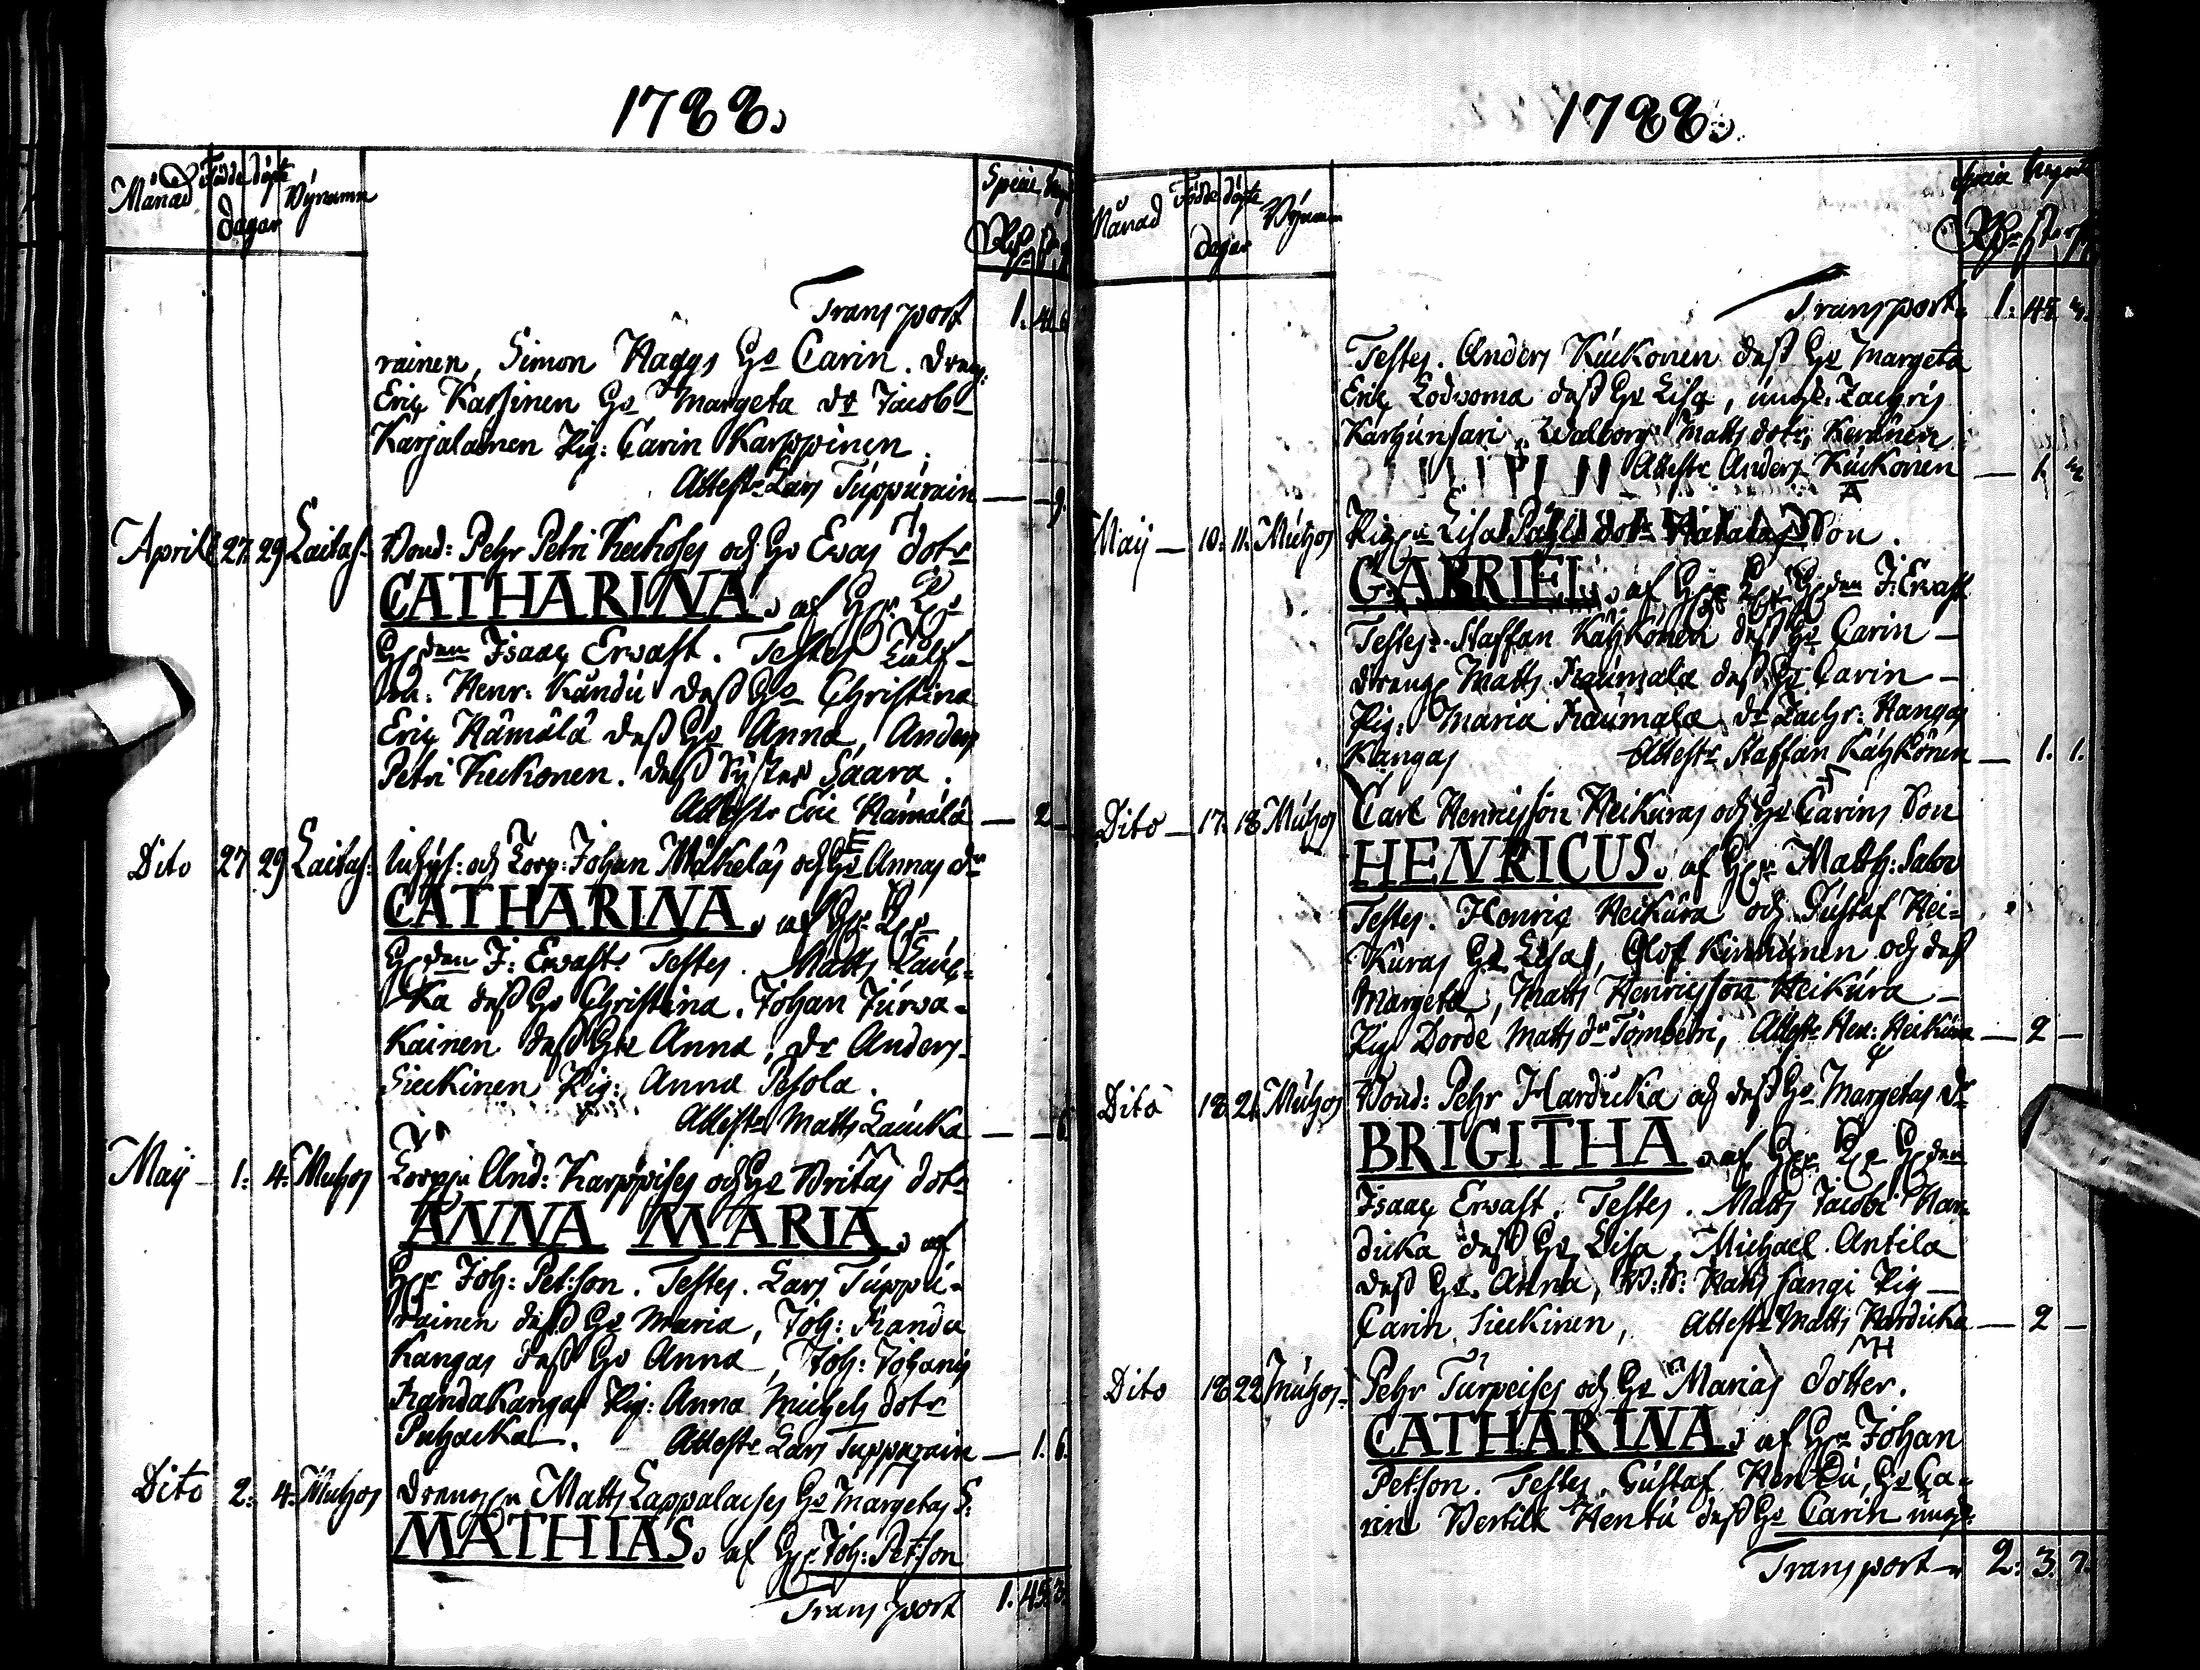 1788.
Månad Födde döpte Bÿnamn
dagar
Specie
Transport 1.
rainen, Simon Haggs Ho Carin. Dreng:
Eric Kassinen Ho Margeta dr Jacob
Karjalainen Pig: Carin Karppinen.
Attestr Lars Tuppurain — 9.
Aprill 27. 29 Laitas. Bond: Pehr Petri Keckoses och Ho Evas dotr
CATHARINA. af Hr
Isaac Ervast. Testes
Henr: Kandu dess Ho Christina
Eric Hämälä dess Ho Anna, Anders
Petri Keckonen. dess Syster Saara.
Attestr Eric Hämälä — 2 —
Dito 27 29 Laitas: Inhys: och Torp: Johan Mäkeläs och Ho Annas dr
CATHARINA. af Hr
J: Ervast. Testes. Matts Lauc-
ka dess Ho Christina. Johan Jurva-
kainen dess Ho Anna, dr Anders
Sieckinen Pig: Anna Pesola.
Attestr Matts Laucka — 6.
Maÿ 1. 4. Muhos Torppn And: Karppises och Ho Britas dotr
ANNA MARIA. af
Hr Joh: Petson. Testes. Lars Tuppu-
rainen dess Ho Maria, Joh: Handu
Kangas dess Ho Anna, Joh: Johans
Handakangas Pig: Anna Michels dotr
Puhacka. Attestr Lars Tuppurain — 1. 6.
Dito 2. 4. Muhos drengen Matts Lappalaises Ho Margetas S:
MATHIAS. af Hr Joh: Petson
Transport 1. 45. 3.
1788.
Månad Födde döpte Bÿnamn
dagar
Specie
Transport 1. 45. 3.
Testes. Anders Kuckonen dess Ho Margeta
Eric Lodvoma dess Ho Lisa, ungk: Zachris
Karhunsari, Walborg Matts dotr, Keränen
Attestr Anders Kuckonen —
Maÿ — 10. 11. Muhos Pigen Lisa Påhls dotr Son.
GABRIEL. af J: Ervast
Testes. Staffan Käyhkönen dess Ho Carin —
dreng Matts Raumala dess Ho Carin —
Pig: Maria Raumala, dr Zachr: Hangas
Kangas Attestr Staffan Käyhkönen — 1. 1.
Dito — 17. 18 Muhos Carl Henricsson Heikuras och Ho Carins Son
HENRICUS. af Hr Matth: Salov
Testes. Henric Heikura och Gustaf Hei-
kuras Ho Lisa, Olof Kinnunen och dess
Margeta, Matts Henricsson Heikura —
Pig Dorde Matts dr Tombetri, Attestr Hen: Heikura — 2 —
Dito 18 21 Muhos Bond: Pehr Harducka och dess Ho Margetas dr
BRIGITHA. af Hr
Isaac Ervast. Testes. Matts Jacobi Har-
ducka dess Ho Lisa, Michael Antila
dess Ho Anna, Matts sangi Pig —
Carin Sieckinen, Attestr Matts Harducka — 2 —
MH
Dito 18 22 Muhos. Pehr Turpeises och Ho Marias dotter.
CATHARINA. af Hr Johan
Petson. Testes. Gustaf Hendu, Ho Ca-
rin Bertill Hentu dess Ho Carin ungk:
Transport 2. 3. 7.